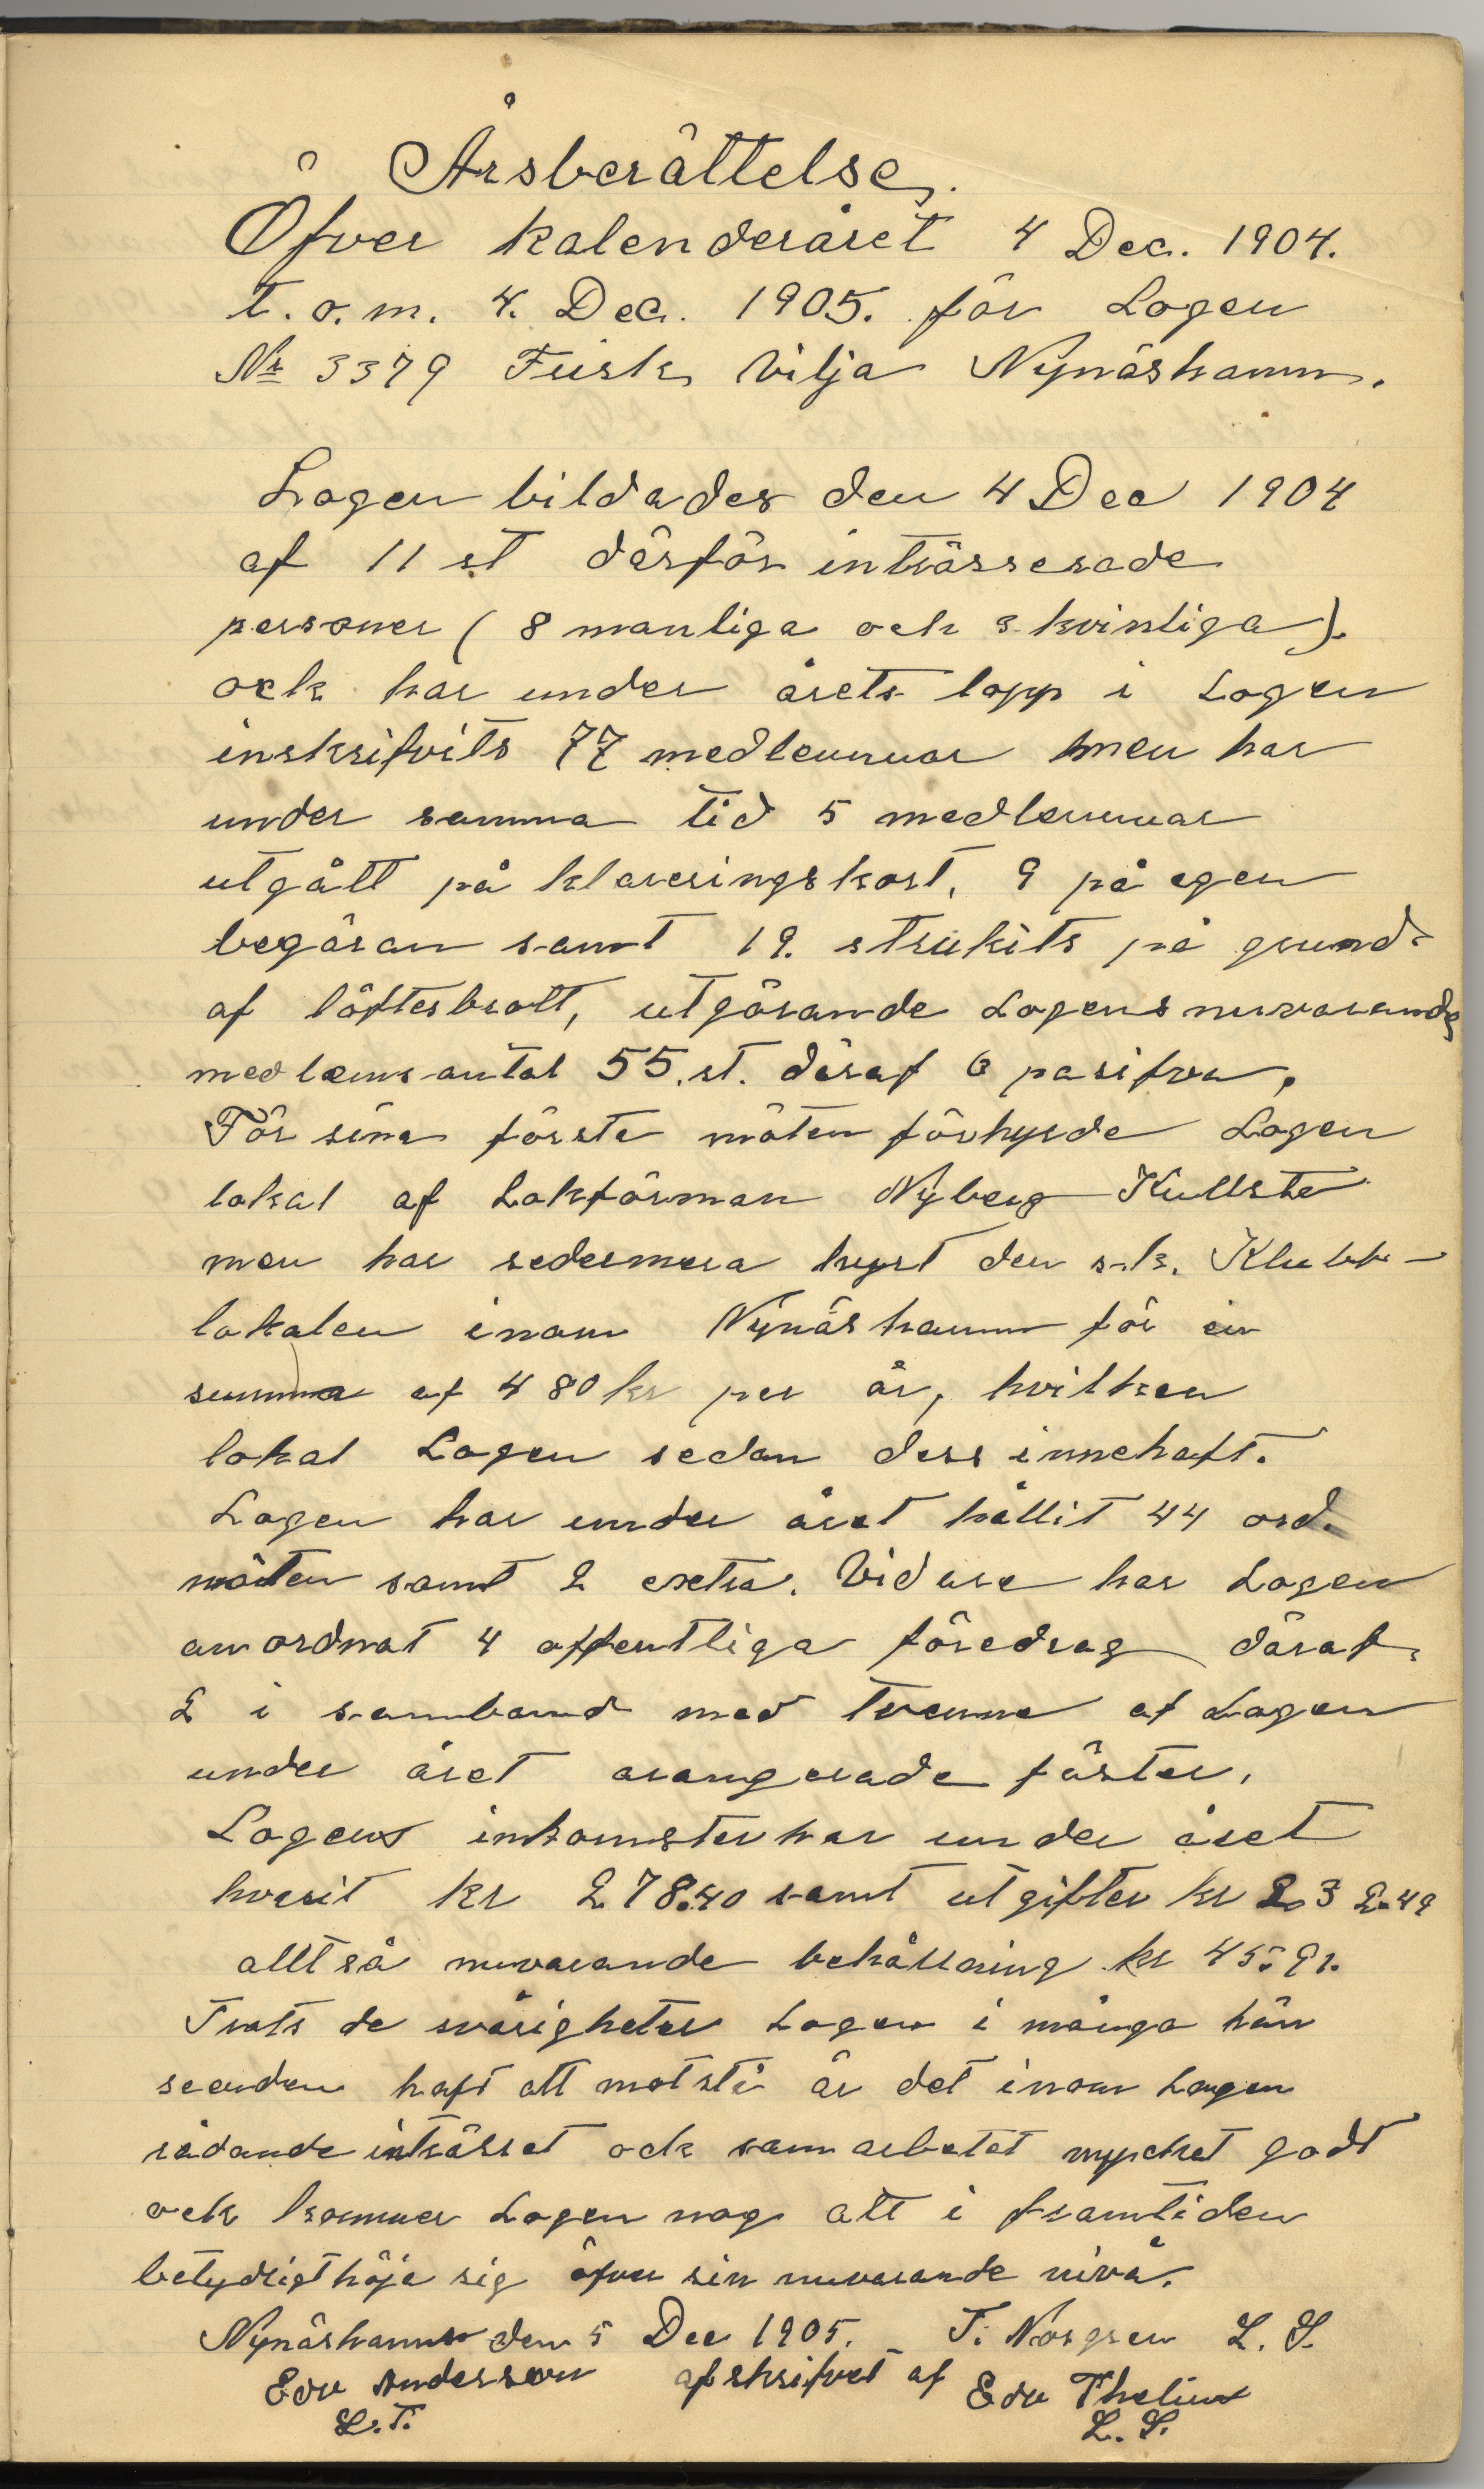 Årsberättelse.
Öfver kalenderåret 4 Dec. 1904.
t.o.m. 4. Dec. 1905. för Logen
Nr 3379 Frisk Vilja Nynäshamn.
Logen bildades den 4 Dec 1904
af 11 st därför inträsserade
personer (8 manliga och 3 kvinliga).
ock har under årets lopp i Logen
inskrifvits 77 medlemmar men har
under samma tid 5 medlemmar
utgått på klareringskort, 9 på egen
begäran samt 19. strukits på grund
af löftesbrott, utgörande Logens nuvarande
medlemsantal 55.st. däraf 6 pasifva,
För sina första möten förhyrde Logen
lokal af Lokförman Nyberg Kullsta
men har sedermera hyrt den s.k. Klubb-
lokalen inom Nynäshamn för en
summa af 480 kr per år, hvilken
lokal Logen sedan dess innehaft.
Logen har under året hållit 44 ord.
möten samt 2 extra. Vidare har Logen
anordnat 4 offentliga föredrag däraf
2 i samband med tvenne af Logen
under året arangerade fäster,
Logens inkomster har under året
hvarit kr 278.40 samt utgifter kr 232.49
alltså nuvarande behållning kr 45:91.
Trots de svårigheter Logen i många hän
seenden haft att motstå är det inom Logen
rådande inträsset ock samarbetet mycket godt
ock kommer Logen nog att i framtiden
betydligt höja sig öfver sin nuvarande nivå.
Nynäshamn den 5 Dec 1905. T. Norgren L. S.
Edv Andersson afskrifvet af Edv Thelin
L.T. L. S.